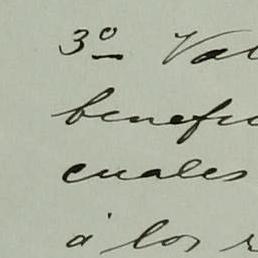 3º Val
benefi
cuales
á los